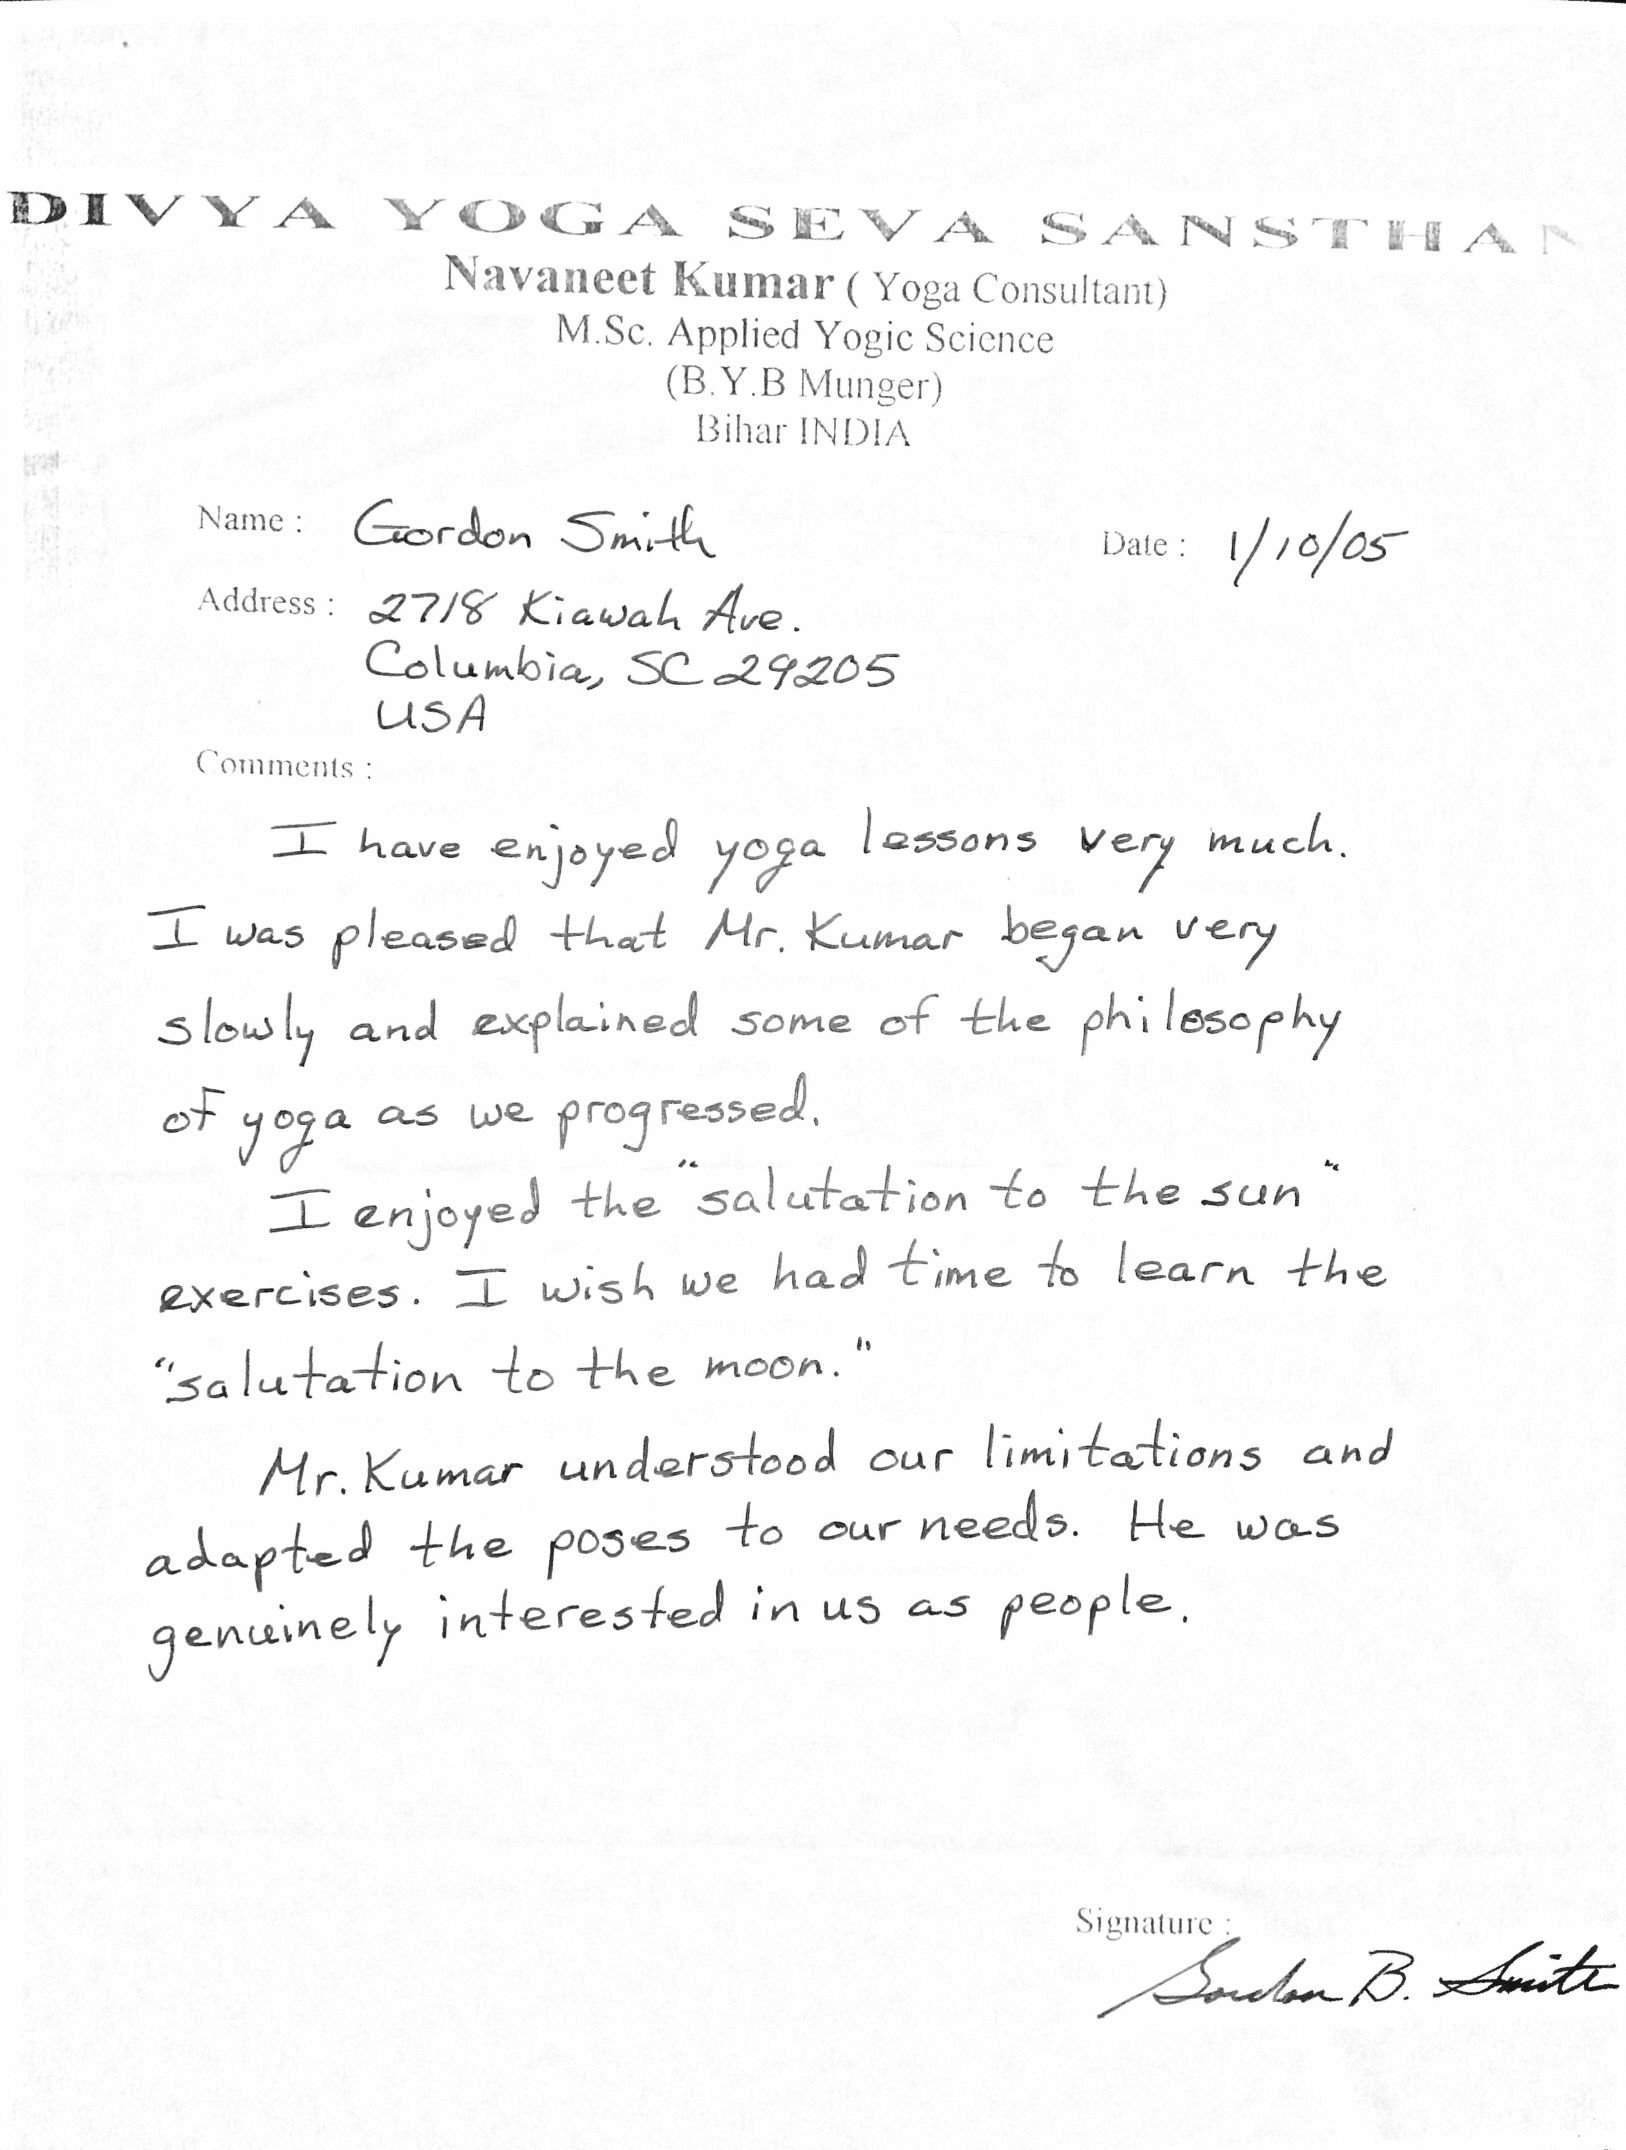 DIVYA YOGA SEVA SANSTHAN
Navaneet Kumar ( Yoga Consultant)
M.Sc. Applied Yogic Science
(B.Y.B Munger)
Bihar INDIA
Name : Gordon Smith
Date : 1/10/05
Address : 2718 Kiawah Ave.
Columbia, SC 29205
USA
Comments :
I have enjoyed yoga lessons very much.
I was pleased that Mr. Kumar began very
slowly and explained some of the philosophy
of yoga as we progressed.
I enjoyed the "salutation to the sun"
exercises. I wish we had time to learn the
"salutation to the moon."
Mr. Kumar understood our limitations and
adapted the poses to our needs. He was
genuinely interested in us as people.
Signature :
Gordon B. Smith